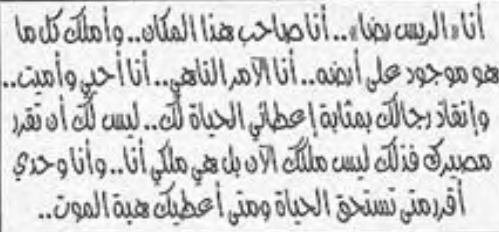 أنا «الريس رضا».. أنا صاحب هذا المكان.. وأملك كل ما
هو موجود على أرضه.. أنا الآمر الناهي.. أنا أحيي وأميت..
وإنقاذ رجالك بمثابة إعطائي الحياة لك.. ليس لك أن تقرر
مصيرك فذلك ليس ملكك الآن بل هي ملكي أنا.. وأنا وحدي
أقرر متى تستحق الحياة ومتى أعطيك هبة الموت..